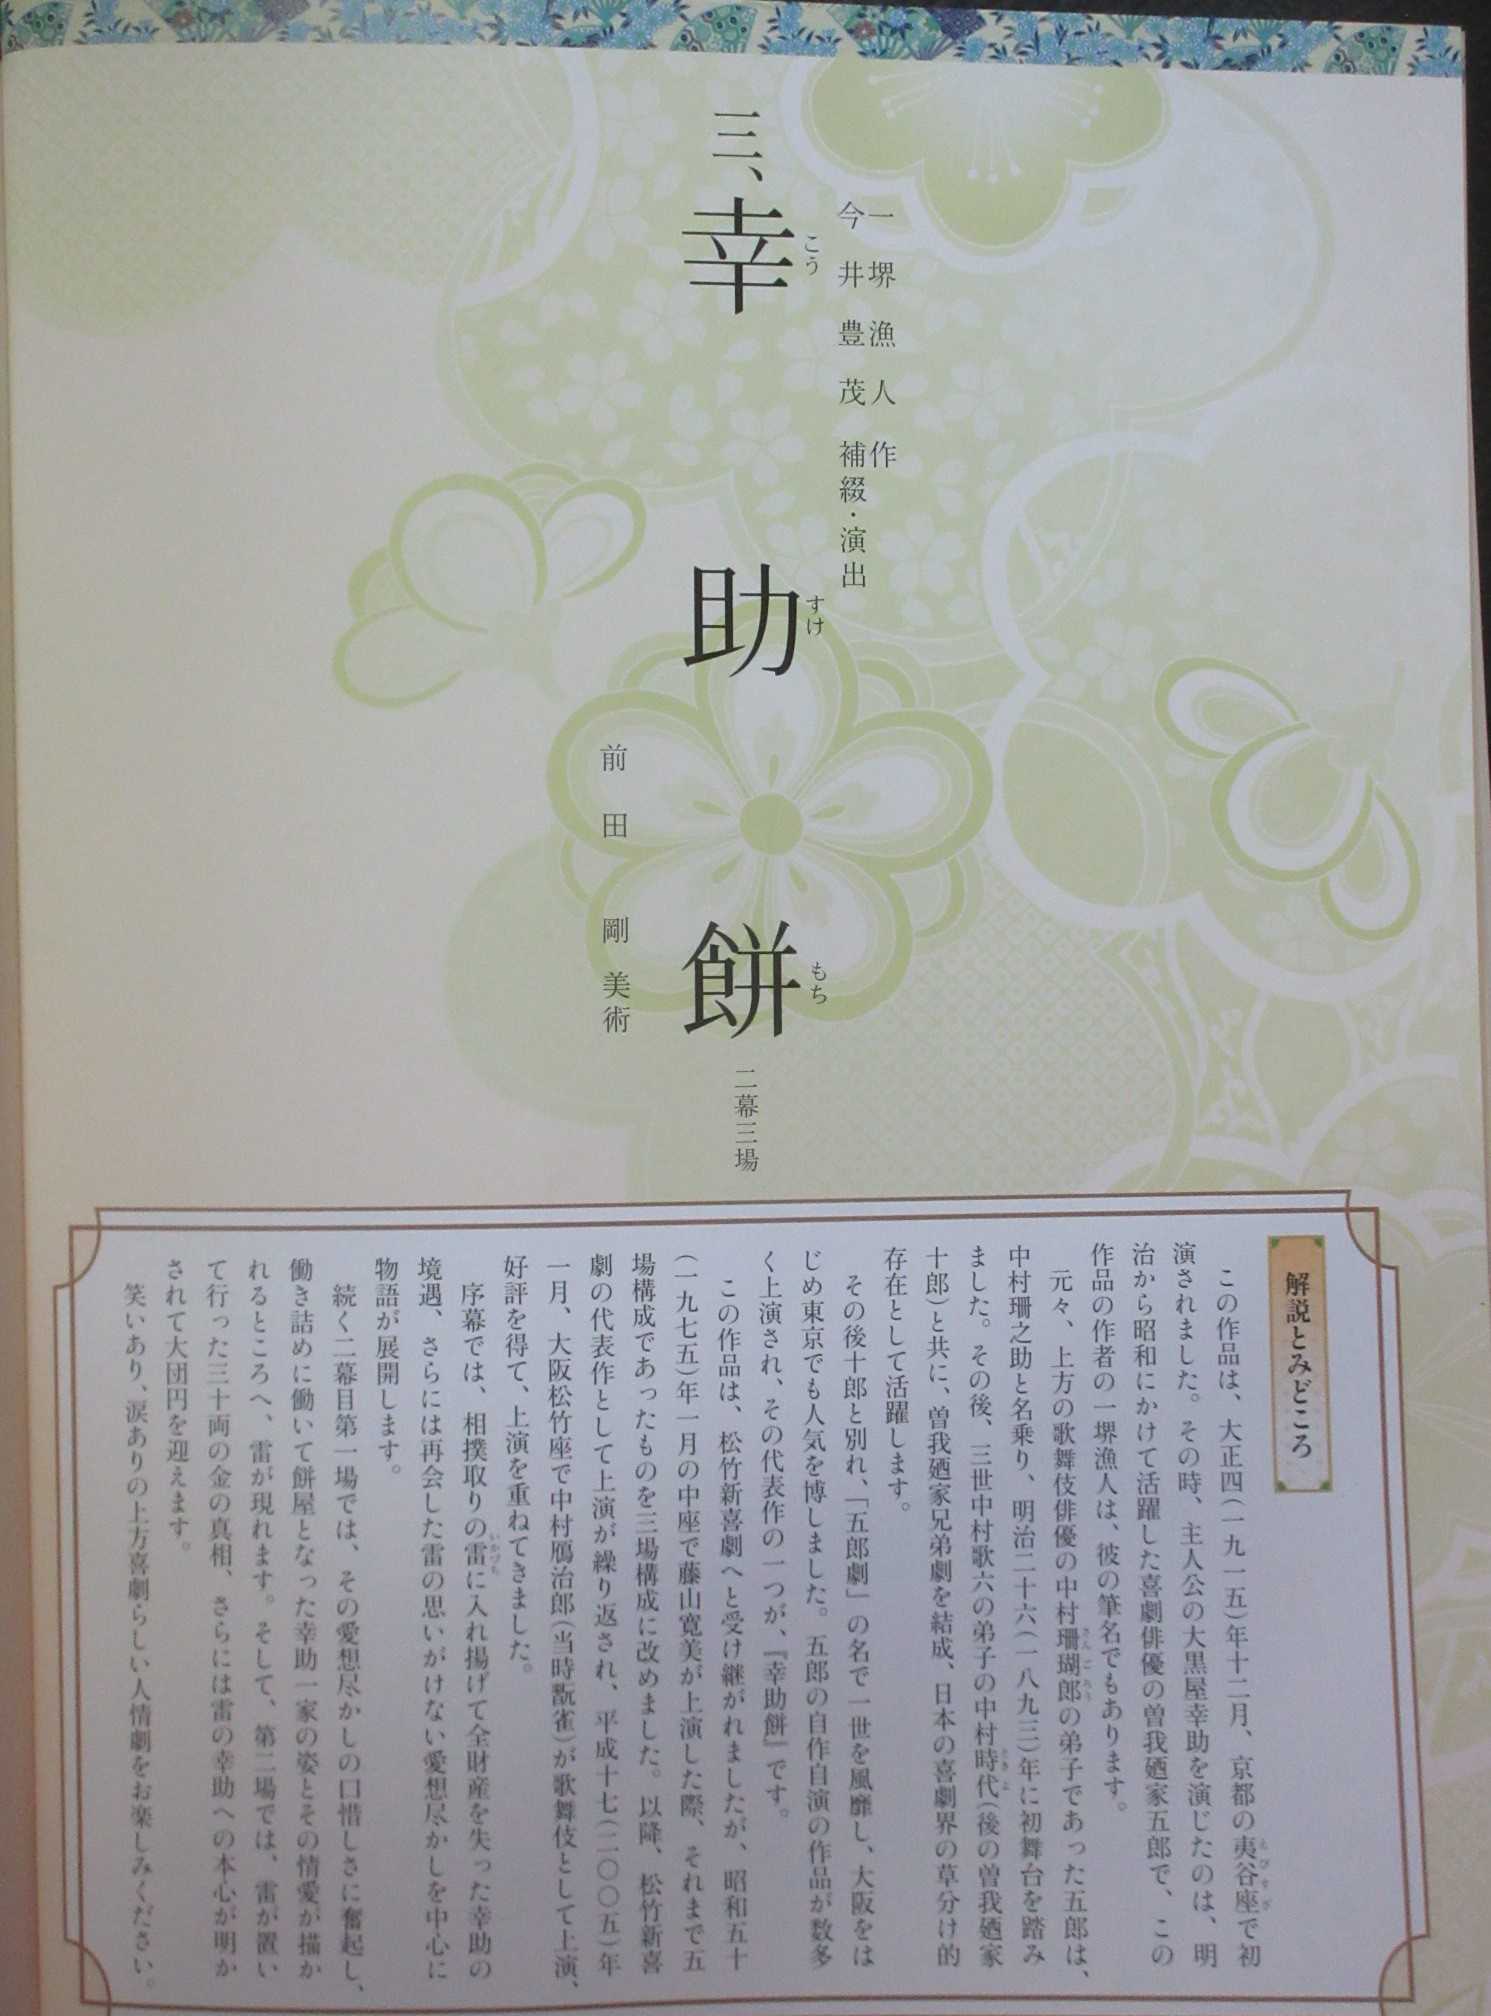 一堺漁人 作
今井豊茂 補綴・演出
三、幸助餅 二幕三場
こう すけ もち
前田 剛 美術
解説とみどころ
この作品は、大正四(一九一五)年十二月、京都の夷谷座で初
演されました。その時、主人公の大黒屋幸助を演じたのは、明
治から昭和にかけて活躍した喜劇俳優の曽我廼家五郎で、この
作品の作者の一堺漁人は、彼の筆名でもあります。
元々、上方の歌舞伎俳優の中村珊瑚郎の弟子であった五郎は、
中村珊之助と名乗り、明治二十六(一八九三)年に初舞台を踏み
ました。その後、三世中村歌六の弟子の中村時代(後の曽我廼家
十郎)と共に、曽我廼家兄弟劇を結成、日本の喜劇界の草分け的
存在として活躍します。
その後十郎と別れ、「五郎劇」の名で一世を風靡し、大阪をは
じめ東京でも人気を博しました。五郎の自作自演の作品が数多
く上演され、その代表作の一つが、『幸助餅』です。
この作品は、松竹新喜劇へと受け継がれましたが、昭和五十
(一九七五)年一月の中座で藤山寛美が上演した際、それまで五
場構成であったものを三場構成に改めました。以降、松竹新喜
劇の代表作として上演が繰り返され、平成十七(二〇〇五)年
一月、大阪松竹座で中村鴈治郎(当時翫雀)が歌舞伎として上演、
好評を得て、上演を重ねてきました。
序幕では、相撲取りの雷に入れ揚げて全財産を失った幸助の
境遇、さらには再会した雷の思いがけない愛想尽かしを中心に
物語が展開します。
続く二幕目第一場では、その愛想尽かしの口惜しさに奮起し、
働き詰めに働いて餅屋となった幸助一家の姿とその情愛が描か
れるところへ、雷が現れます。そして、第二場では、雷が置い
て行った三十両の金の真相、さらには雷の幸助への本心が明か
されて大団円を迎えます。
笑いあり、涙ありの上方喜劇らしい人情劇をお楽しみください。